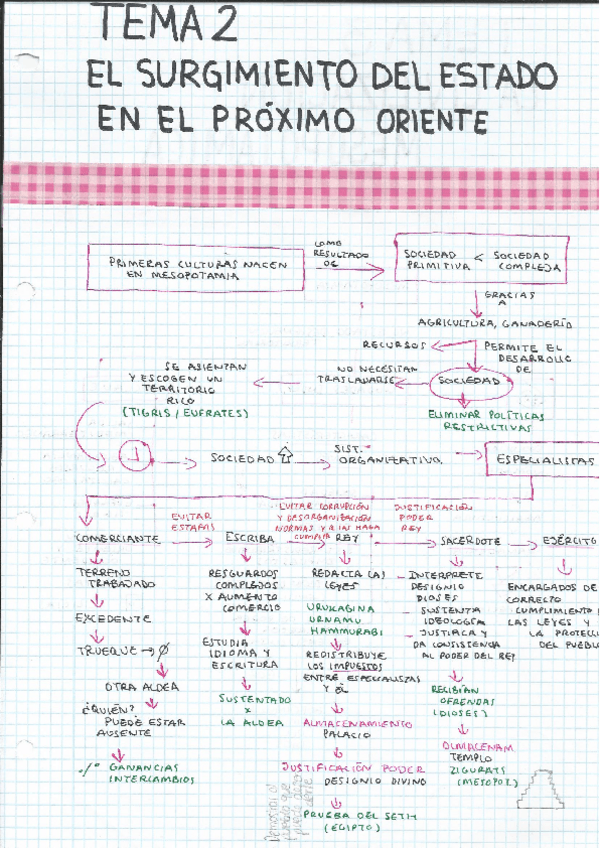 TEMA 2
EL SURGIMIENTO DEL ESTADO
EN EL PRÓXIMO ORIENTE
PRIMERAS CULTURAS NACEN
EN MESOPOTAMIA
COMO
RESULTADO
DE
SOCIEDAD < SOCIEDAD
PRIMITIVA COMPLEJA
GRACIAS
A
AGRICULTURA, GANADERÍA
RECURSOS
PERMITE EL
DESARROLLO
DE
SOCIEDAD
NO NECESITAN
TRASLADARSE
SE ASIENTAN
Y ESCOGEN UN
TERRITORIO
RICO
(TIGRIS / EUFRATES)
ELIMINAR POLÍTICAS
RESTRICTIVAS
1
SOCIEDAD
SIST.
ORGANIZATIVO.
ESPECIALISTAS
COMERCIANTE
EVITAR
ESTAFAS
ESCRIBA
EVITAR CORRUPCIÓN
Y DESORGANIZACIÓN
NORMAS Y Q LAS HAGA
CUMPLIR
REY
JUSTIFICACIÓN
PODER
REY
SACERDOTE
EJÉRCITO
TERRENO
TRABAJADO
EXCEDENTE
TRUEQUE → Ø
OTRA ALDEA
¿QUIÉN?
PUEDE ESTAR
AUSENTE
·/· GANANCIAS
INTERCAMBIOS
RESGUARDOS
COMPLEJOS
X AUMENTO
COMERCIO
ESTUDIA
IDIOMA Y
ESCRITURA
SUSTENTADO
X
LA ALDEA
REDACTA LAS
LEYES
URUKAGINA
URNAMU
HAMMURABI
REDISTRIBUYE
LOS IMPUESTOS
ENTRE ESPECIALISTAS
Y ÉL
ALMACENAMIENTO
PALACIO
JUSTIFICACIÓN PODER
DESIGNIO DIVINO
PRUEBA DEL SETH
(EGIPTO)
- INTERPRETE
DESIGNIO
DIOSES
- SUSTENTA
IDEOLOGÍA
- JUSTIFICA Y
DA CONSISTENCIA
AL PODER DEL REY
RECIBÍAN
OFRENDAS
(DIOSES)
ALMACENAM
TEMPLO
ZIGURATS
(MESOPOT.)
ENCARGADOS DE
CORRECTO
CUMPLIMIENTO
LAS LEYES Y
LA PROTECC
DEL PUEBL